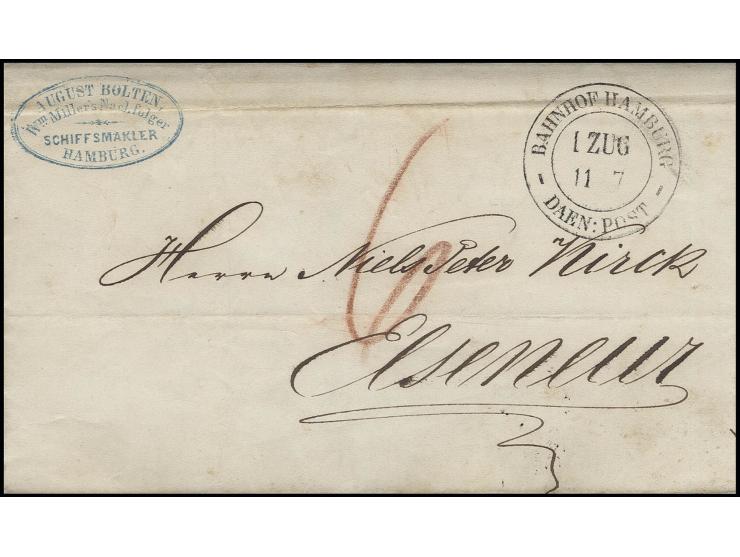 AUGUST BOLTEN,
Wm Miller's Nachfolger
SCHIFFSMAKLER
HAMBURG.
BAHNHOF HAMBURG
I ZUG
11 7
- DAEN: POST -
6
Herrn Niels Peter Kirck
Elseneur